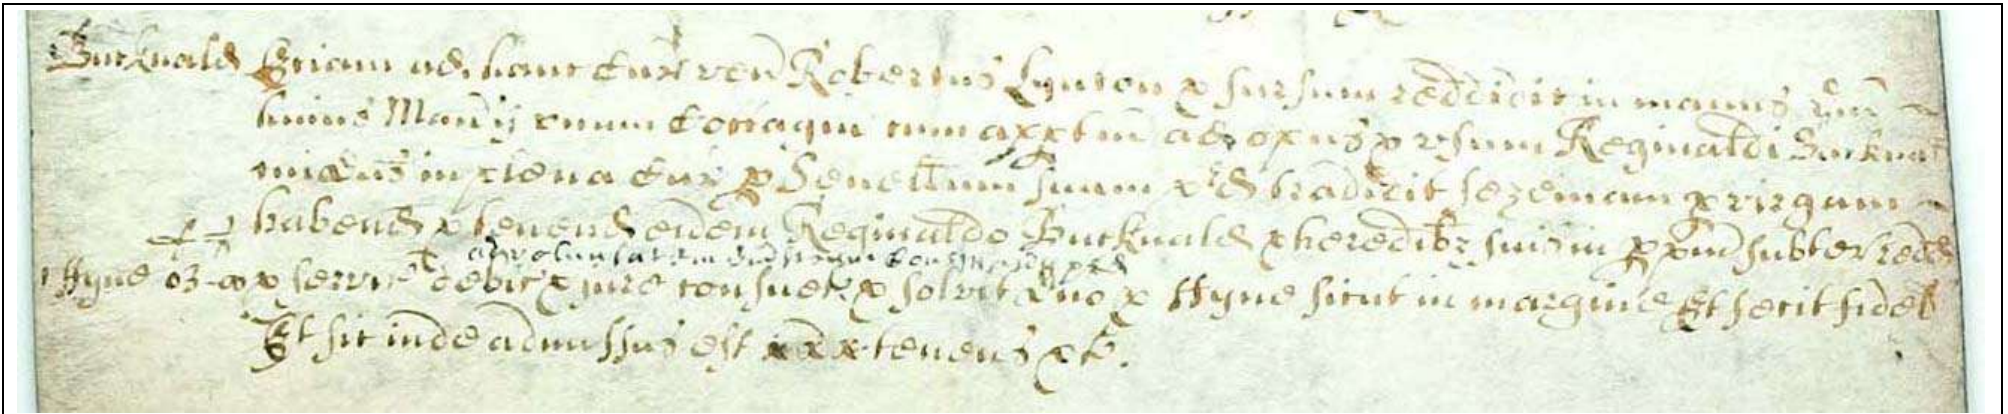 Bucknald Etiam ad hanc Cur ven Robertus Lynton & sursum reddidit in manus dni
huius Manij unum Cottagiu cum apptin ad opus & usum Reginaldi Bucknal
in plena Cur p Senellum suum tradidit sezeniam p virgam
habend & tenend eidem Reginaldo Bucknald & heredibz suis in ppm subter redd
ad voluntatem dni
ffyne & servic debit & jure consuet & solvit dno p ffyne sicut in margine Et fecit fidel
Et sic inde admissus est tenens &c.